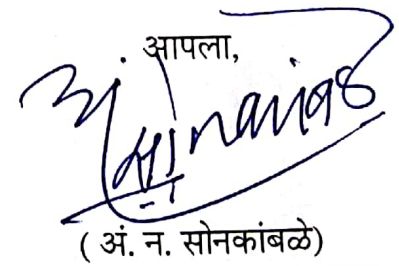 आपला,
( अं. न. सोनकांबळे)